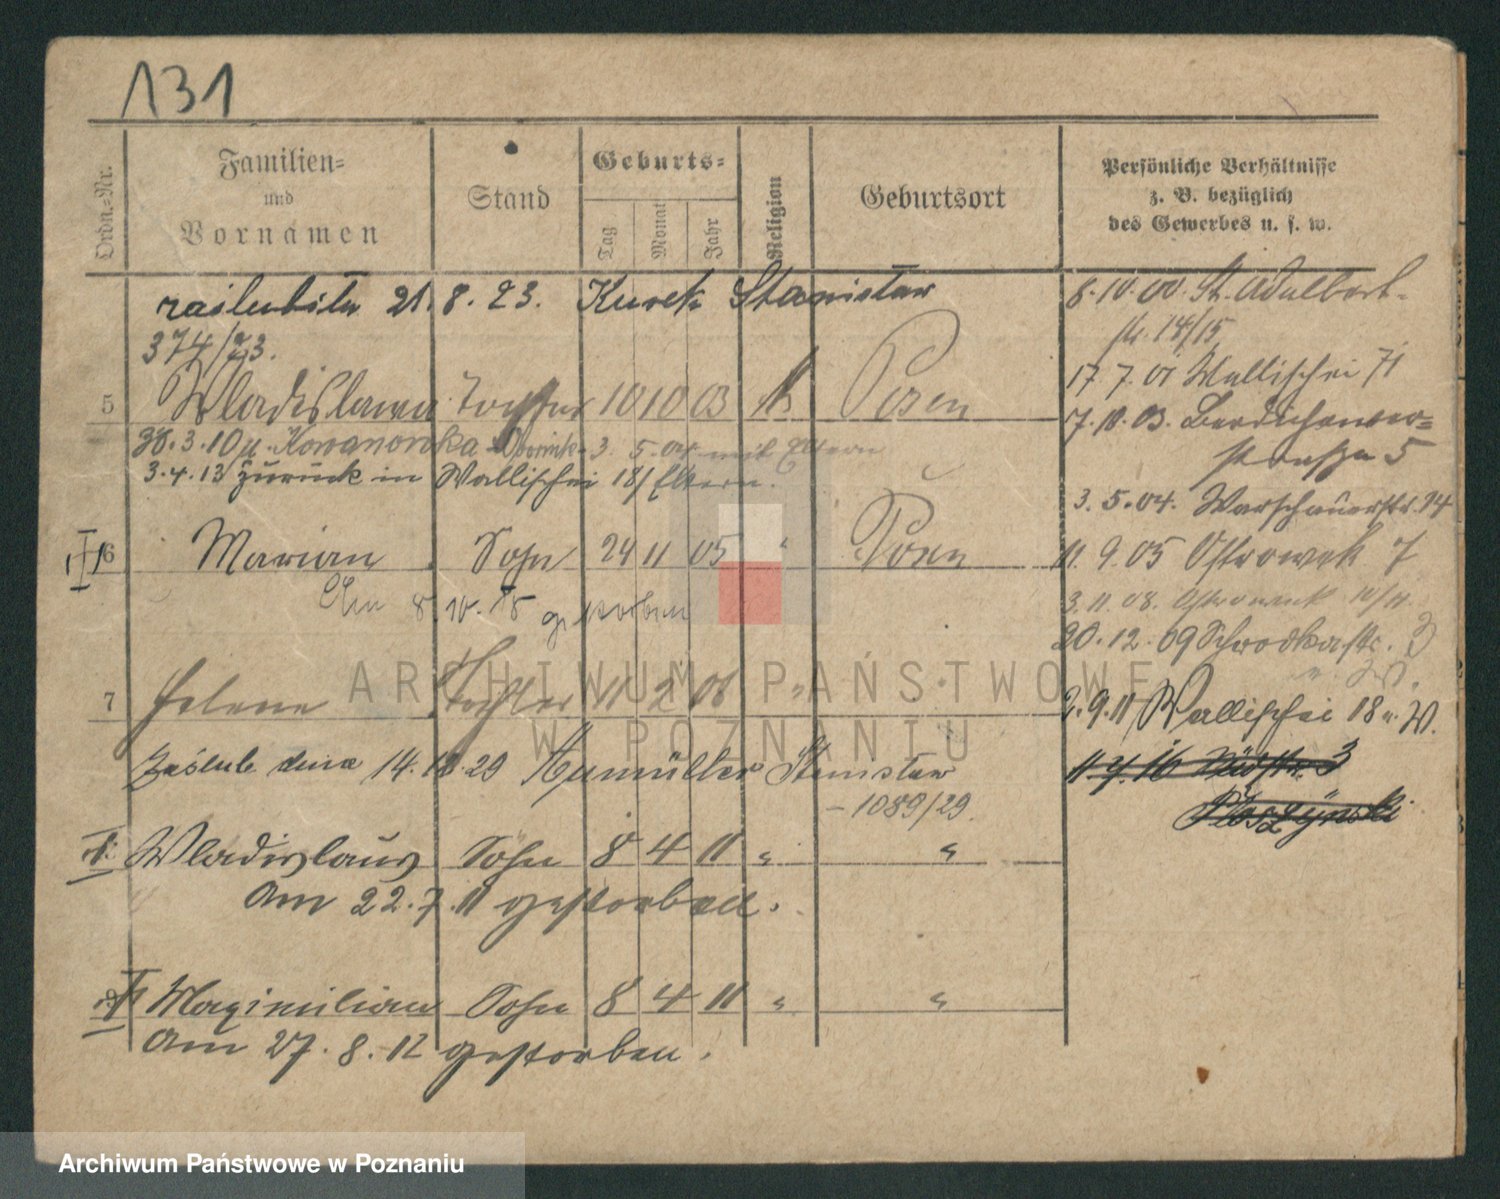 131
Ordn.-Nr.
Familien-
und
Vornamen
Stand
Geburts-
Tag
Monat
Jahr
Religion
Geburtsort
Persönliche Verhältnisse
z. B. bezüglich
des Gewerbes u. s. w.
zaślubiła 21. 8. 23. Kurek Stanisław
374/23.
5 Wladislawa Tochter 10 10 03 k Posen
3. 10 u. Kowanowka Obornik 3. 5. 04 mit Eltern
3.4.13 zurück in Wallischei 18/ Eltern.
6 Marian Sohn 24 11 05 " Posen
Am 8. 10. gestorben
7 Helene Tochter 11 2 08 "
Zaślub. dnia 14. 29 Stanisław
- 1089/29.
Wladislaus Sohn 8 4 11 " "
Am 22. 7. 11 gestorben.
Maximilian Sohn 8 4 11 " "
Am 27. 8. 12 gestorben.
8. 10. 00. St. Adalbert-
str. 14/15
17. 7. 01 Wallischei 71
7. 10. 03. Berdichower-
strasse 5
3. 5. 04. Warschauerstr. 14
11. 9. 05 Ostrowek 7
3. 11. 08. Ostrowek 10/11.
20. 12. 09 Schrodkastr. 3
2. 9. 11 Wallischei 18 u. W.
11. 4. 16 3
ARCHIWUM PAŃSTWOWE
W POZNANIU
Archiwum Państwowe w Poznaniu